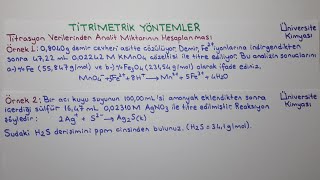 TİTRİMETRİK YÖNTEMLER
Titrasyon Verilerinden Analit Miktarının Hesaplanması
Üniversite
Kimyası
Örnek 1: 0,8040g demir cevheri asitte çözülüyor. Demir, Fe²⁺ iyonlarına indirgendikten
sonra 47,22 mL 0,02242 M KMnO₄ çözeltisi ile titre ediliyor. Bu analizin sonuçlarını
a-) % Fe (55,847g/mol) ve b-) % Fe₃O₄ (231,54 g/mol) olarak ifade ediniz.
MnO₄⁻ + 5Fe²⁺ + 8H⁺ → Mn²⁺ + 5Fe³⁺ + 4H₂O
Örnek 2: Bir acı kuyu suyunun 100,00 mL'si amonyak eklendikten sonra
içerdiği sülfür 16,47 mL 0,02310 M AgNO₃ ile titre edilmiştir. Reaksiyon
şöyledir: 2Ag⁺ + S²⁻ → Ag₂S(k)
Üniversite
Kimyası
Sudaki H₂S derişimini ppm cinsinden bulunuz. (H₂S = 34,1 g/mol).